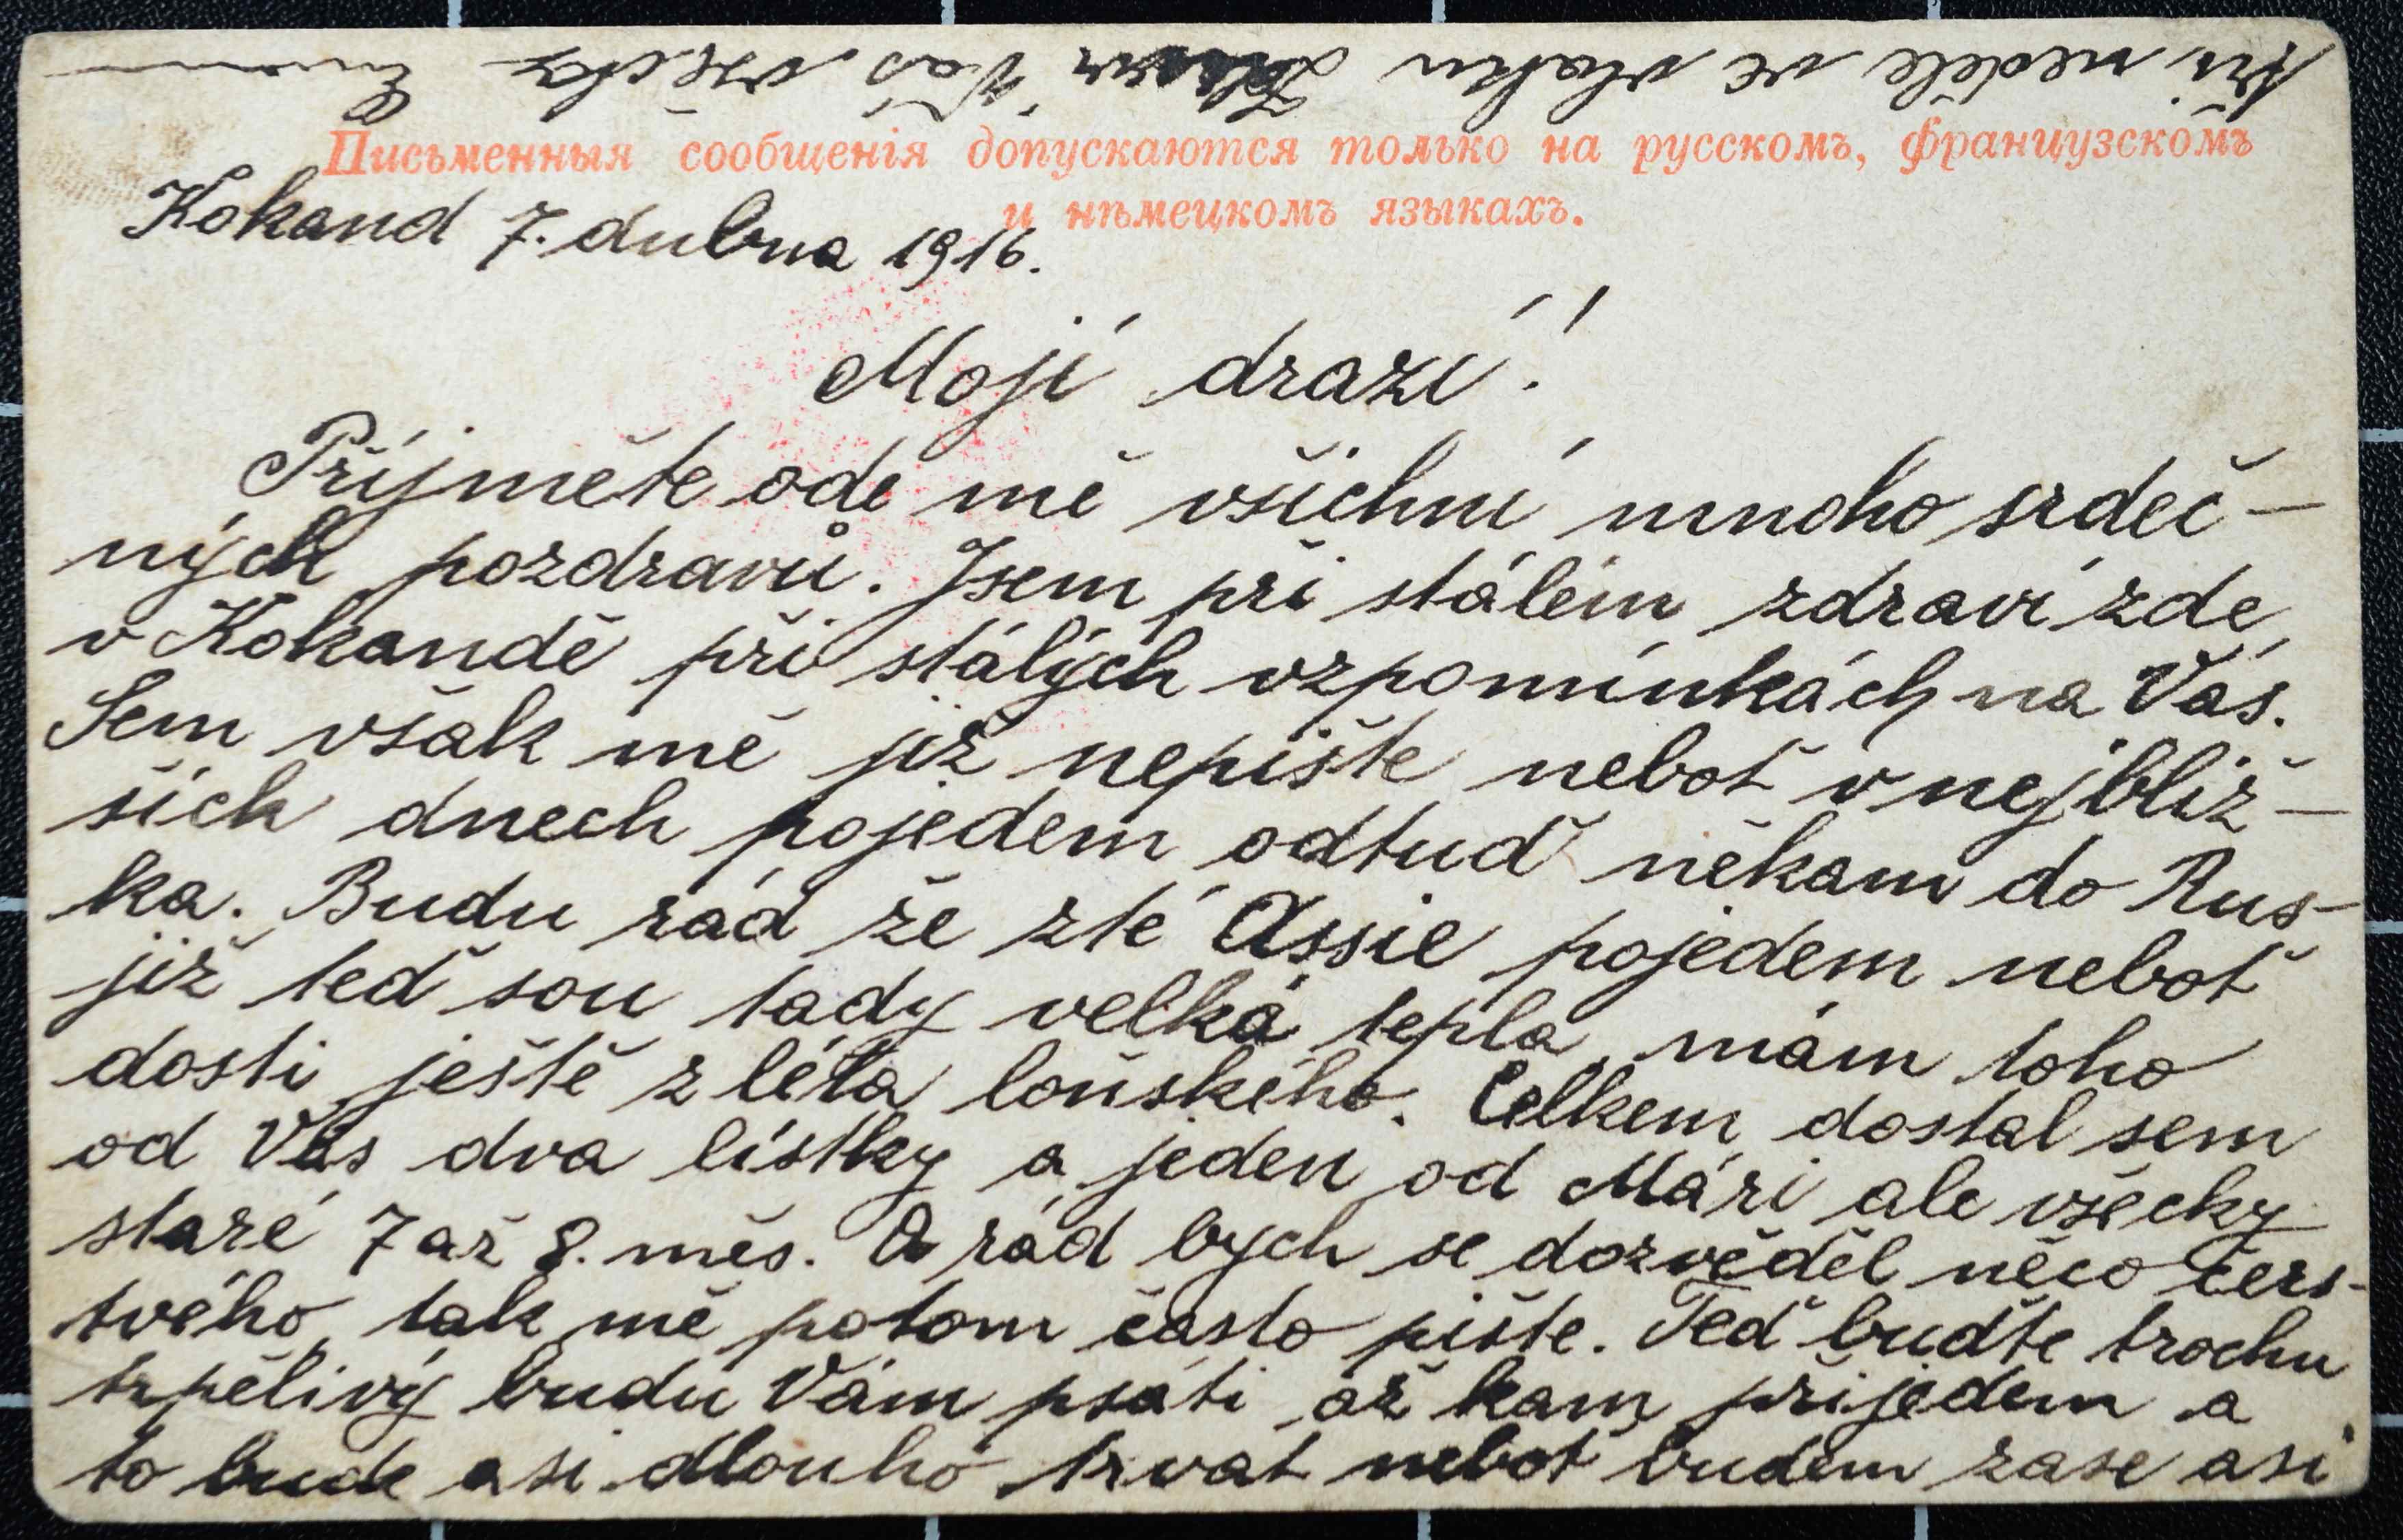 Письменныя сообщенія допускаются только на русскомъ, французскомъ
и нѣмецкомъ языкахъ.
Kokand 7. dubna 1916.
Mojí drazí!
Příjměte ode mě všichní mnoho srdeč-
ných pozdravů. Jsem při stálém zdraví zde
v Kokandě při stálých vzpomínkách na Vás.
Sem však mě již nepište neboť v nejbliž-
ších dnech pojedem odtuď někam do Rus-
ka. Budu rád že zté Assie pojedem neboť
již teď sou tady velká tepla, mám toho
dosti ještě z léta loňského. Celkem dostal sem
od Vás dva lístky a jeden od Máři ale všecky
staré 7 až 8. měs. A rád bych se dozvěděl něco čers-
tvého, tak mě potom často pište. Teď buďte trochu
trpělivý budu Vám psáti až kam přijedem a
to bude asi dlouho trvat neboť budem zase asi
tři neděle ve vlaku Vás všecky